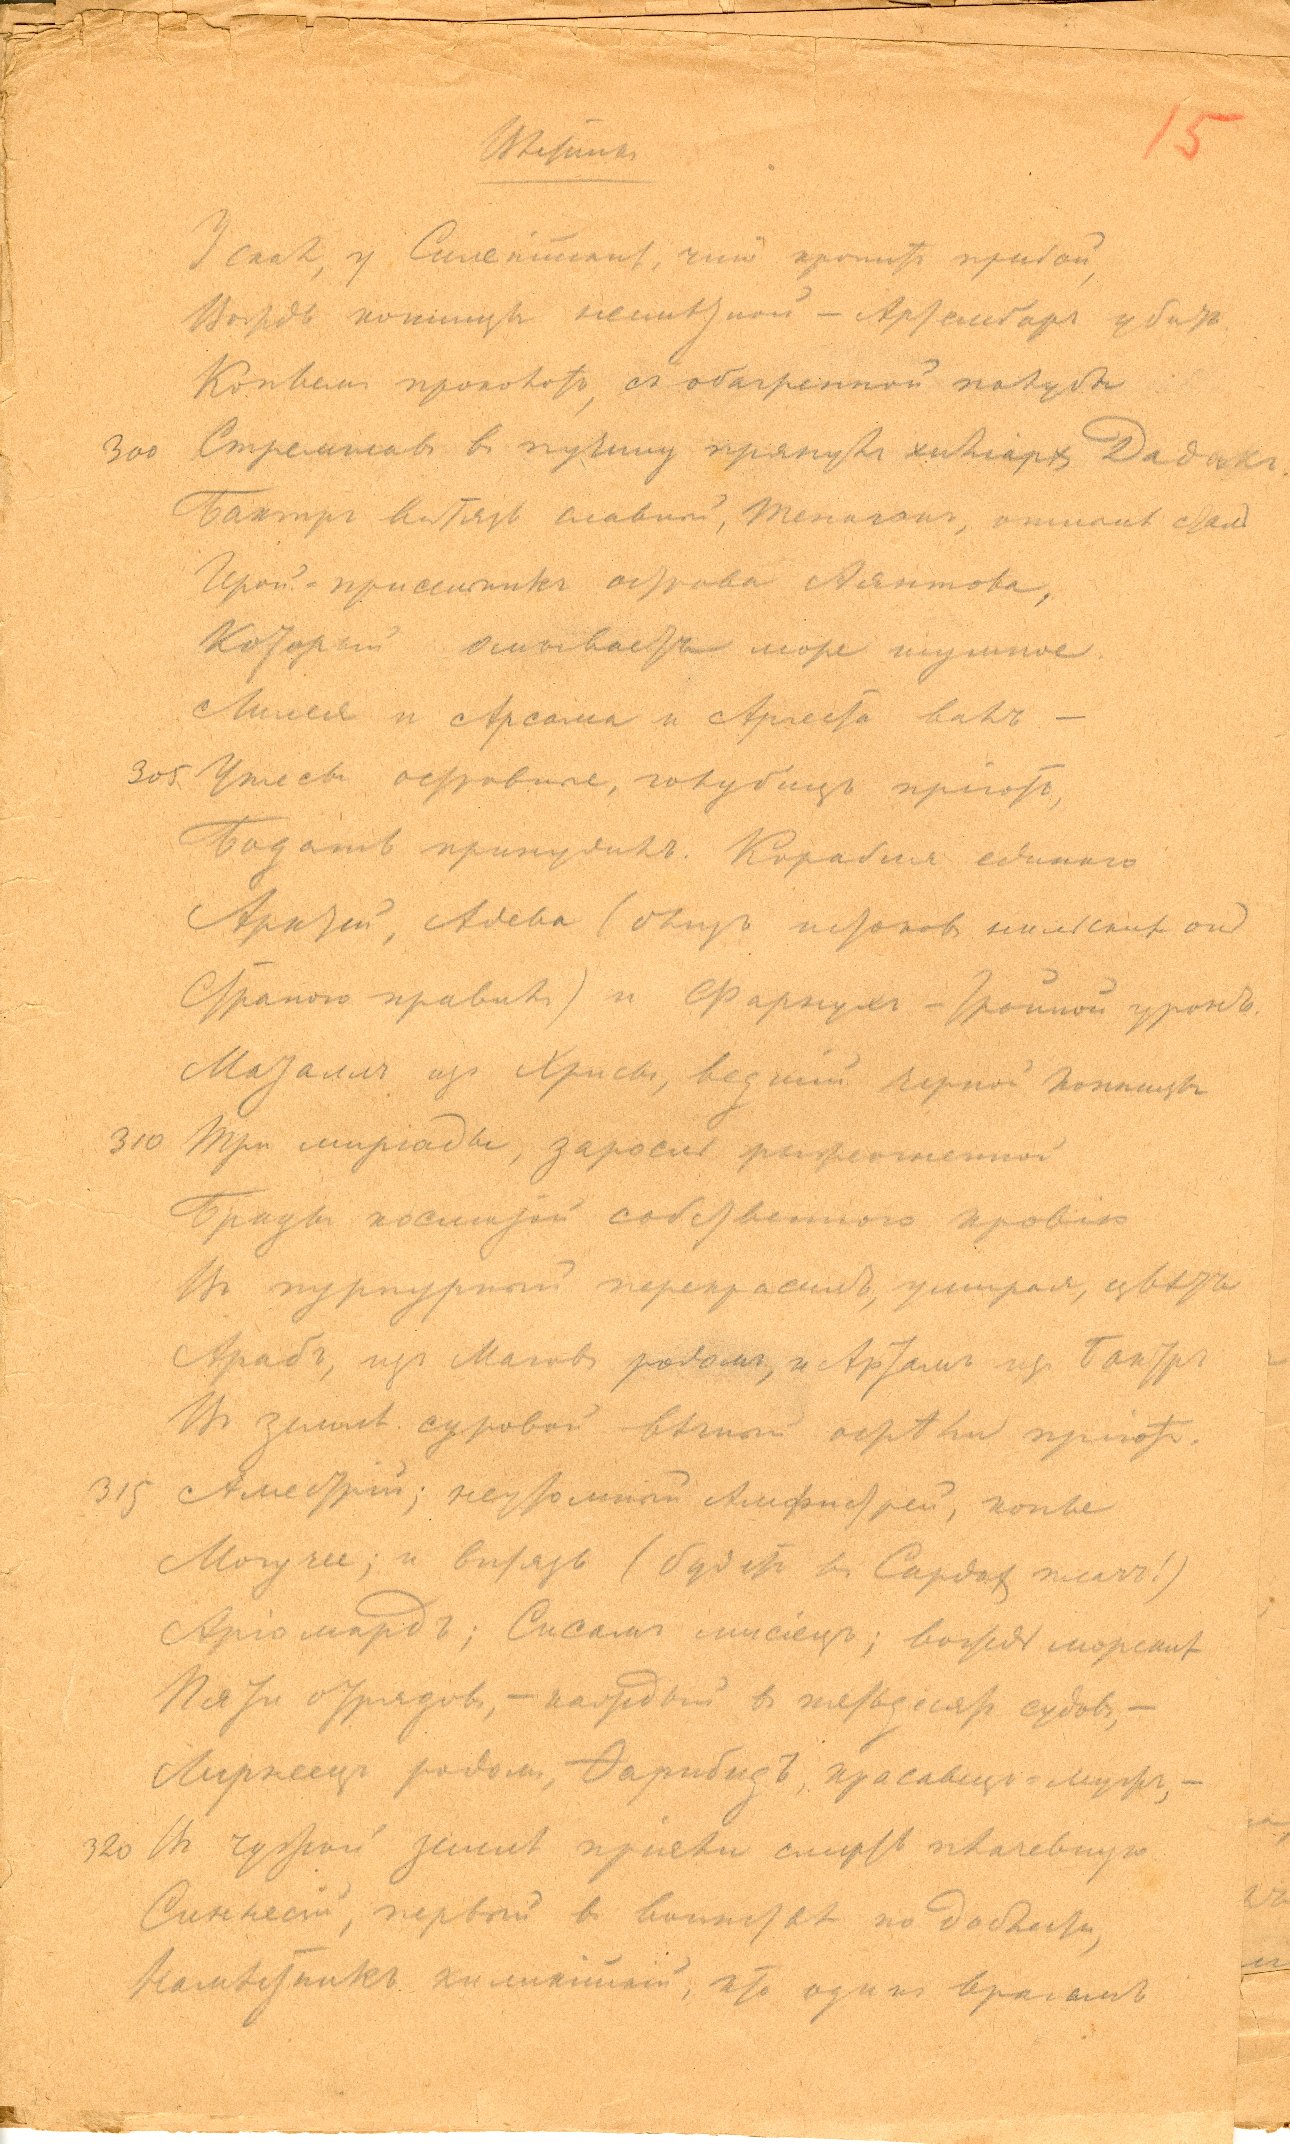 15
Вѣстникъ
У скалъ, у Силенійскихъ, чей кропитъ прибой,
Вождь конницы несмѣтной – Артембаръ убитъ.
Копьемъ проколотъ, съ обагренной палубы
300 Стремглавъ въ пучину прянулъ хиліархъ Дадакъ.
Бактръ витязь славный, Тенагонъ, отнынѣ сталъ
Герой-пришлецъ острова Аянтова,
Который омываетъ море шумное.
Лилея и Арсама и Аргеста валъ –
305 Утесы островные, голубицъ пріютъ,
Бодать принудилъ. Корабля единаго
Арктей, Адева (близъ истоковъ нильскихъ онъ
Страною правилъ) и Фарнухъ – тройной уронъ.
Маталлъ изъ Хрисы, ведшій черной конницы
310 Три миріады, заросль рыжеогненной
Брады косматой собственною кровію
Въ пурпурный перекрасилъ, умирая, цвѣтъ
Арабъ, изъ Маговъ родомъ, и Артамъ изъ Бактръ
Въ землѣ суровой вѣчный обрѣли пріютъ.
315 Аместрій; неутомный Амфистрей, копье
Могучее; и витязь (будетъ въ Сардахъ плачъ!)
Аріомардъ; Сисамъ мисіецъ; вождь морскихъ
Пяти отрядовъ, – каждый въ пятьдесятъ судовъ, –
Лирнеецъ родомъ, Ѳарибидъ, красавецъ-мужъ, –
320 Въ чужой землѣ пріяли смерть плачевную
Сіеннесій, первый въ воинствѣ по доблести,
Намѣстникъ киликійскій, кто одинъ врагамъ